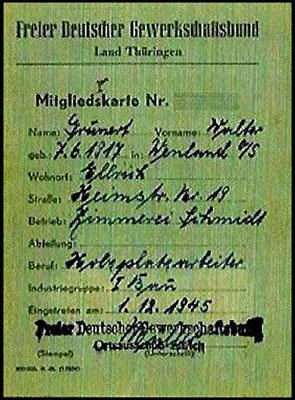 Freier Deutscher Gewerkschaftsbund
Land Thüringen
Mitgliedskarte Nr.
Name: Grünert Vorname: Walter
geb.: 7.6.1917 in:
Wohnort: Ellrich
Straße: Heimstr. Nr 19
Betrieb: Zimmerei Schmidt
Abteilung:
Beruf: Holzplatzarbeiter
Industriegruppe: I Bau
Eingetreten am: 1.12.1945
Freier Deutscher Gewerkschaftsbund
Ortsausschuß Ellrich
(Stempel) (Unterschrift)